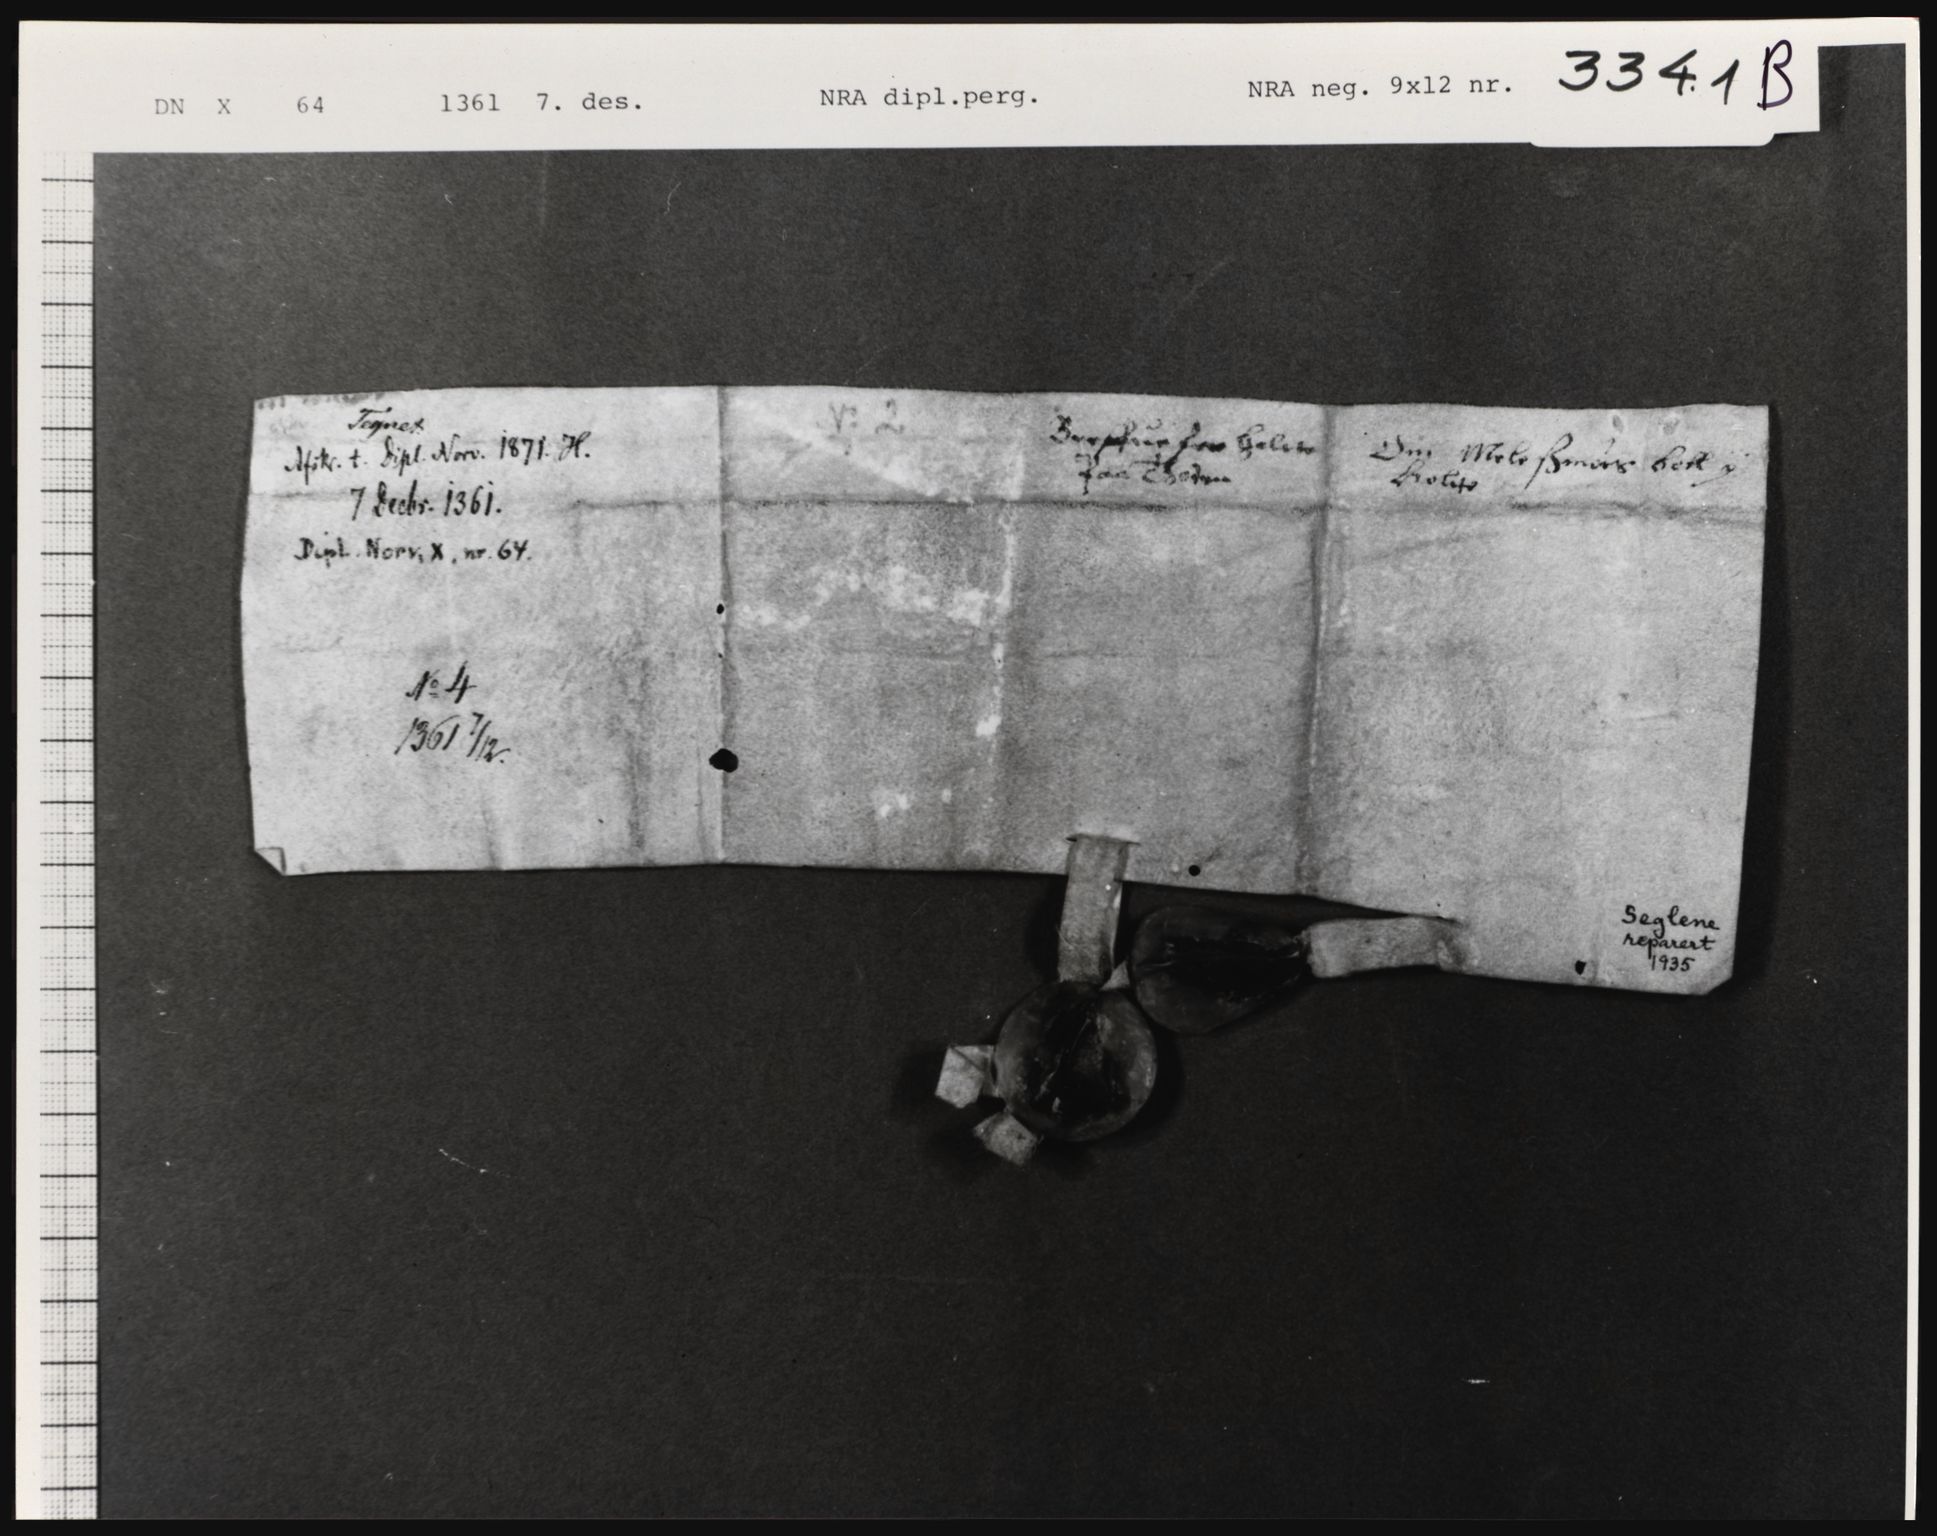 DN X 64 1361 7. des. NRA dipl.perg. NRA neg. 9x12 nr. 334.1 B
Tegnet
Afskr. t. Dipl. Norv. 1871. H.
7 Decbr. 1361.
Dipl. Norv. X, nr. 64.
No 4
1361 7/12.
No 2
Om
Seglene
reparert
1935